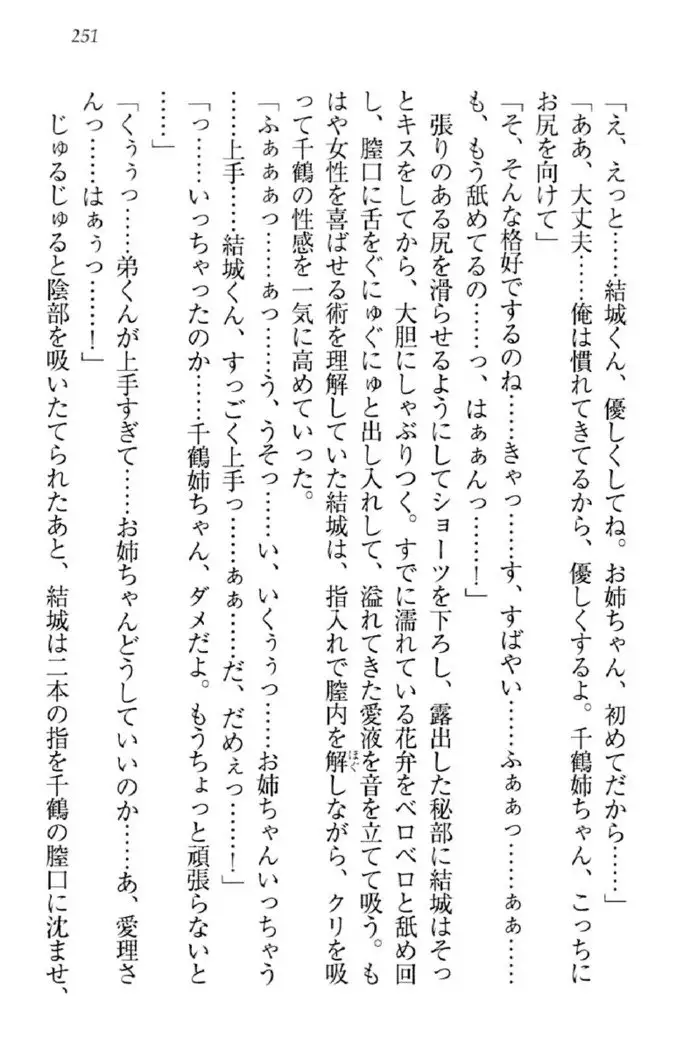 251
「え、えっと……結城くん、優しくしてね。お姉ちゃん、初めてだから……」
「ああ、大丈夫……俺は慣れてきてるから、優しくするよ。千鶴姉ちゃん、こっちに
お尻を向けて」
「そ、そんな格好でするのね……きゃっ……す、すばやい……ふぁあっ……ぁぁ……
も、もう舐めてるの……っ、はぁぁんっ……！」
張りのある尻を滑らせるようにしてショーツを下ろし、露出した秘部に結城はそっ
とキスをしてから、大胆にしゃぶりつく。すでに濡れている花弁をベロベロと舐め回
し、膣口に舌をぐにゅぐにゅと出し入れして、溢れてきた愛液を音を立てて吸う。も
はや女性を喜ばせる術を理解していた結城は、指入れで膣内を解しながら、クリを吸
って千鶴の性感を一気に高めていった。
「ふぁぁぁっ……ぁっ……う、うそっ……い、いくぅぅっ……お姉ちゃんいっちゃう
……上手……結城くん、すっごく上手っ……ぁぁ……だ、だめぇっ……！」
「っ……いっちゃったのか……千鶴姉ちゃん、ダメだよ。もうちょっと頑張らないと
……」
「くぅぅっ……弟くんが上手すぎて……お姉ちゃんどうしていいのか……あ、愛理さ
んっ……はぁぅっ……！」
じゅるじゅると陰部を吸いたてられたあと、結城は二本の指を千鶴の膣口に沈ませ、